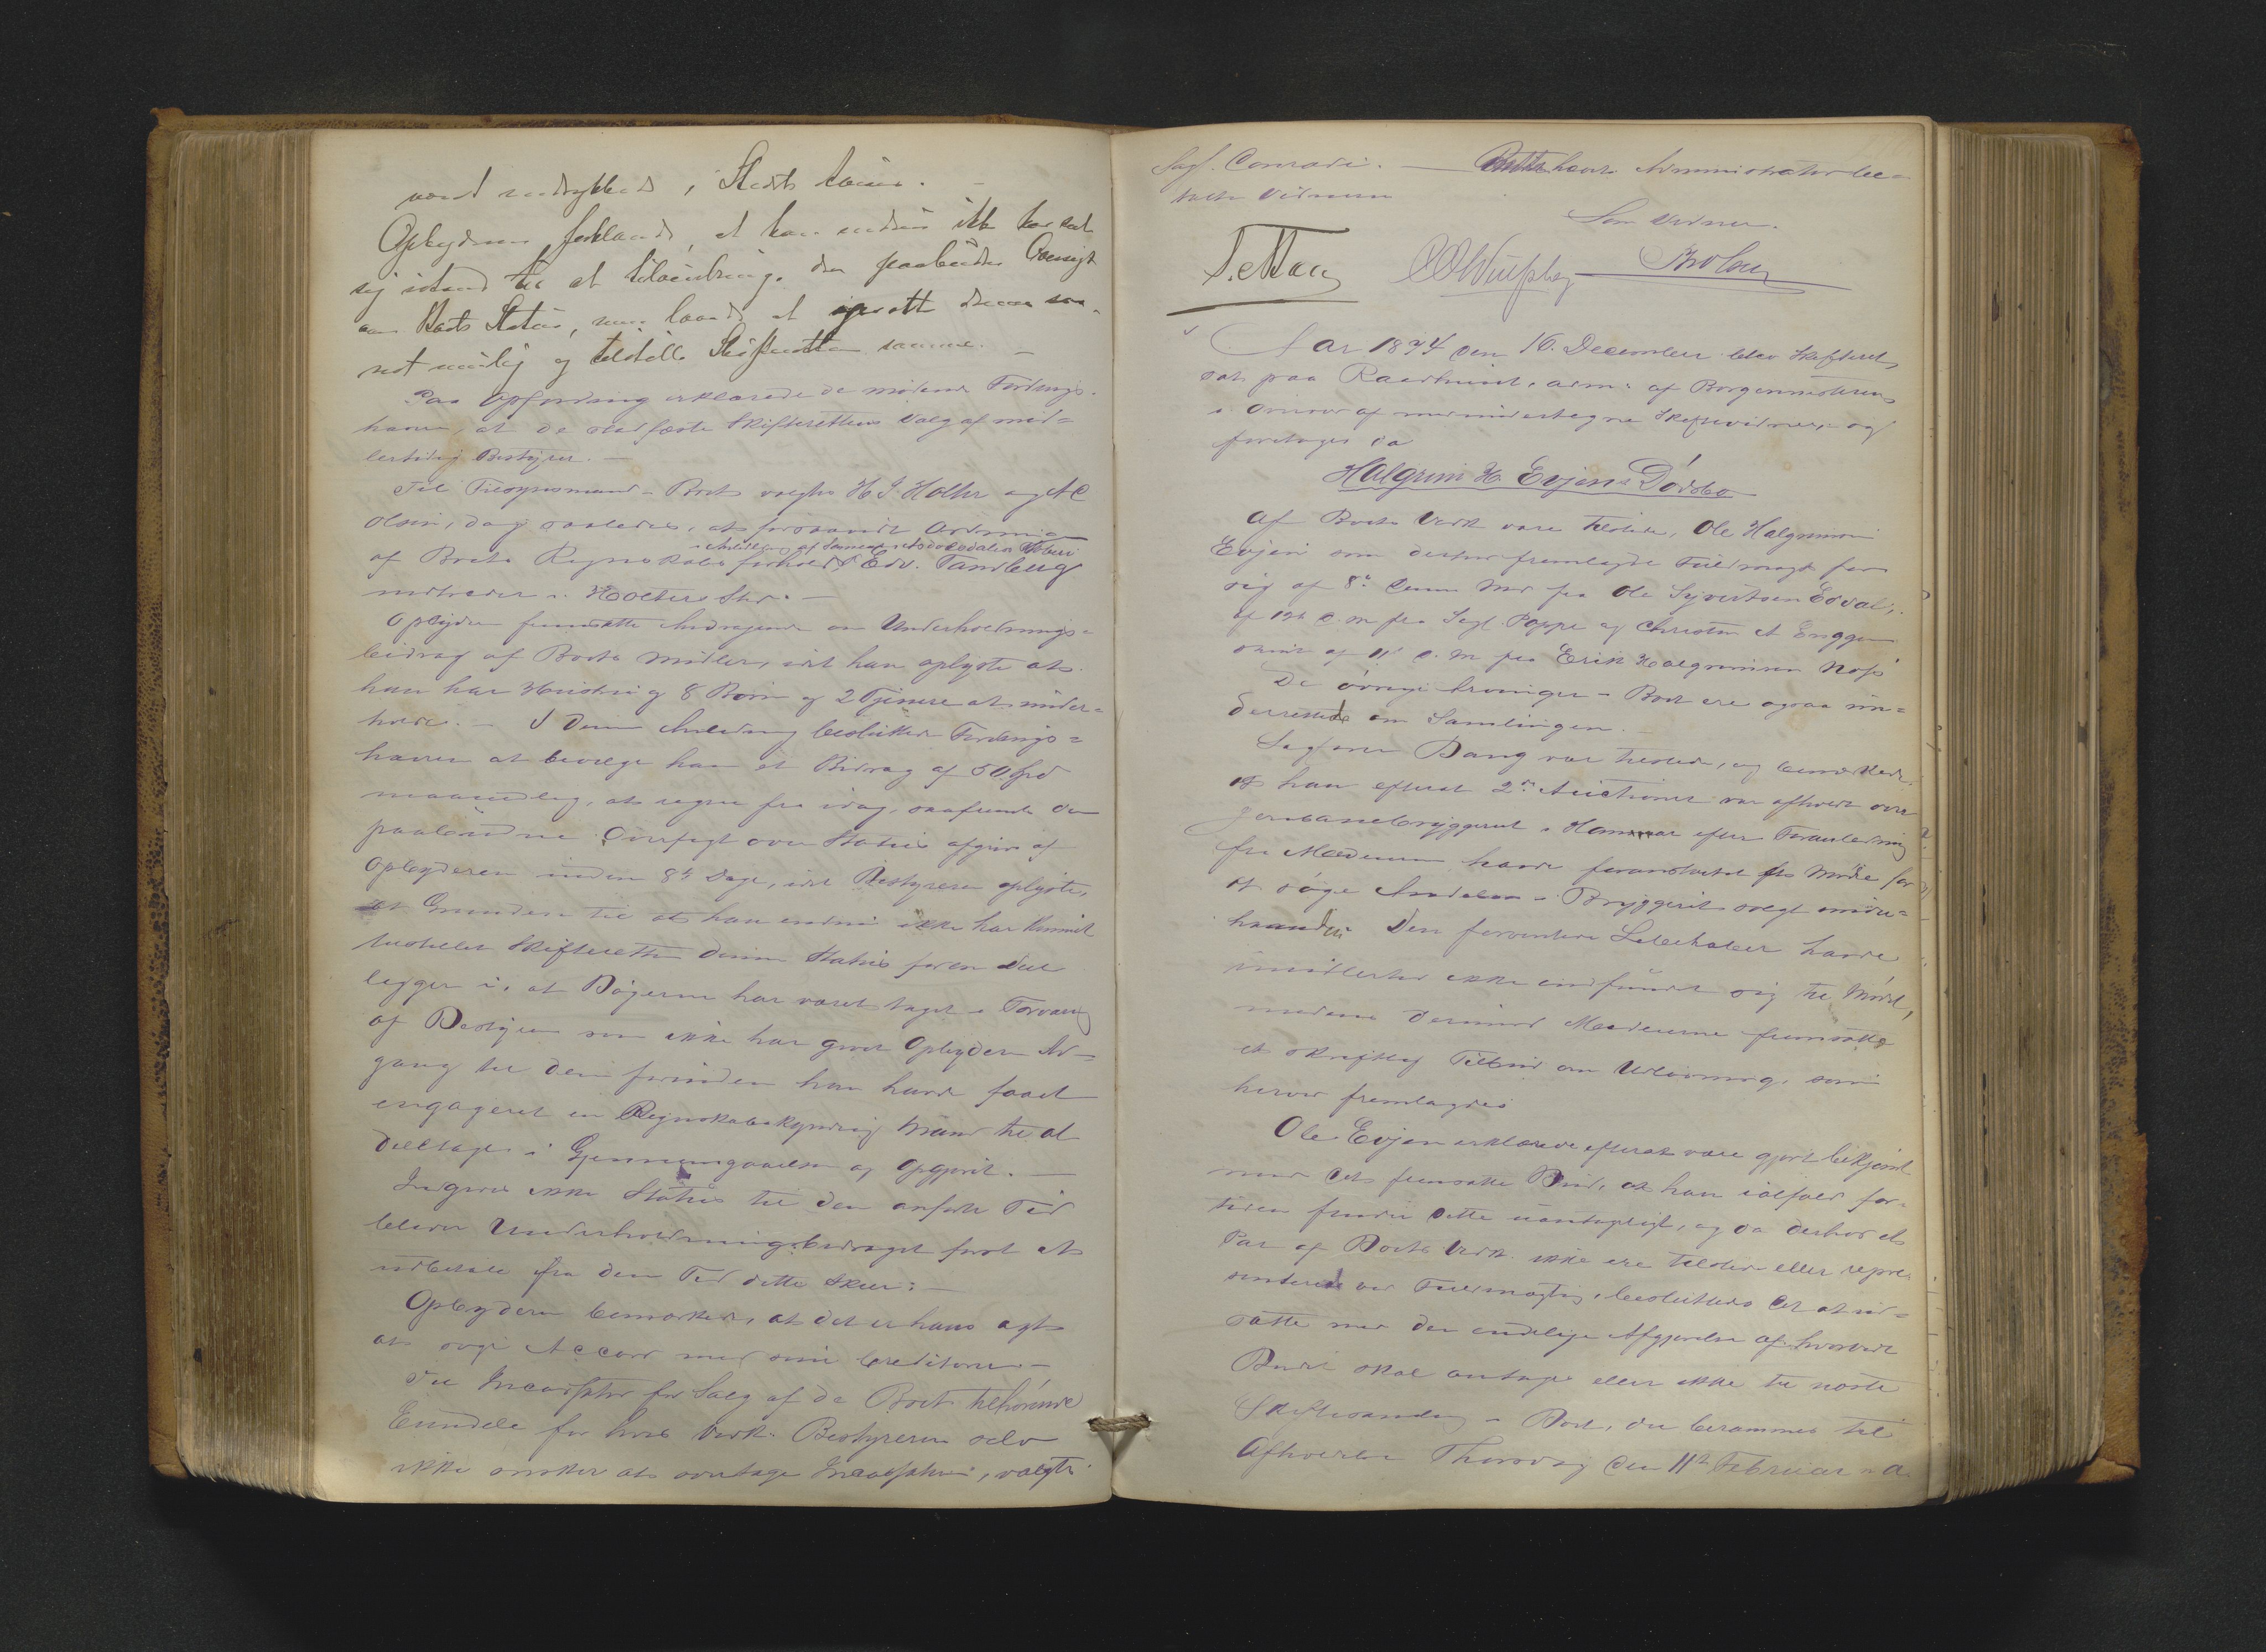 været indrykket i Stedets Aviser. —
Opbyderen forklarede, at han endnu ikke har seet
sig istand til at tilveiebringe den paabudte Oversigt
over Boets Status, men lovede at oprette denne sna-
rest mulig og tilstille Skifteretten samme. —
Paa Opfordring erklærede de mødende Fordrings-
havere, at de stadfæste Skifterettens Valg af mid-
lertidig Bestyrer. —
Til Tilsynsmænd i Boet valgtes H J Holter og A C
Olsen, dog saaledes, at forsaavidt Ordning
i Anledning af
af Boets Regnskabsforhold Edv. Tandberg
indtræder i Holters Sted. —
Opbyder fremsatte Andragende om Underholdnings-
bidrag af Boets Midler, idet han oplyste at
han har Hustru og 8 Børn og 2 Tjenere at under-
holde. — I den Anledning besluttede Fordrings-
havere at bevilge ham et Bidrag af 50 Spd
maanedlig, at regne fra idag, saafremt den
paabudne Oversigt over Status afgives af
Opbyderen inden 8te Dage, idet Bestyreren oplyste,
at Grunden til at han endnu ikke har kunnet
tilstillet Skifteretten denne Status for en Deel
ligger i, at Bøgerne har været taget i Forvaring
af Bestyreren som ikke har givet Opbyderen Ad-
gang til dem forinden han havde faaet
engageret en Regnskabskyndig Mand til at
deeltage i Gjennemgaaelsen og Opgjøret. —
Indgives ikke Status til den anførte Tid
bliver Underholdningsbidraget først at
udbetale fra den Tid dette skeer. —
Opbyderen bemærkede, at det er hans Agt
at søge Accord med sine Creditorer. —
Til Incassator for Salg af de Boet tilhørende
Eiendele for hvis Vedk. Bestyreren selv
ikke ønsker at overtage Incassationen, valgtes
Sagf. Conradi. — Rettens Administrator be-
talte Vidnerne
Som Vidner.
Aar 1874 den 16. December blev Skifteret
sat paa Raadhuset, adm. af Borgermesteren
i Overvær af medundertegnede Skiftevidner, og
foretoges da
Halgrim H. Evjens Dødsbo
Af Boets Vedk vare tilstede, Ole Halgrimsen
Evjen som derhos fremlagde Fuldmagt for
sig af 8de denne Mnd fra Ole Syvertsen Ødval,
af 12te d. M. fra Sagf. Poppe og Christen A Enggen
samt af 11' d. M. fra Erik Halgrimsen Næss
De øvrige Arvinger i Boet ere ogsaa un-
derrettede om Samlingen.
Sagfører Bang var tilstede, og bemærkede
at han efterat 2den Auction var afholdt over
Jernbanebryggeriet i Hammar efter Foranledning
fra Mæderne havde foranstaltet et Møde for
at søge Andelen i Bryggeriet solgt under-
haanden. Den forventede Liebhaber havde
imidlertid ikke indfundet sig til Mødet,
medens derimod Mæderne fremsatte
et skriftlig Tilbud om Udløsning, som
herved fremlagdes
Ole Evjen erklærede efterat være gjort bekjendt
med det fremsatte Bud, at han ialfald for-
tiden fandt dette uantageligt, og da derhos et
Par af Boets Vedk. ikke ere tilstede eller repre-
senterede ved Fuldmægtig, besluttedes det at ud-
sætte med den endelige Afgjørelse af hvorvidt
Budet skal antages eller ikke til næste
Skiftesamling i Boet, der berammes til
Afholdelse Thorsdag den 11te Februar n. A.